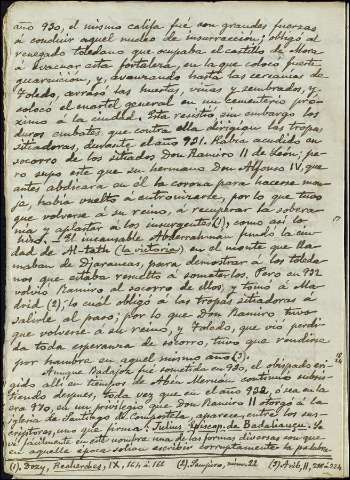 año 930, el mismo califa fué con grandes fuerzas
á concluir aquel nucleo de insurrección; obligó al
renegado toledano que ocupaba el castillo de Mora
á evacuar esta fortaleza, en la que colocó fuerte
guarnición, y, avanzando hasta las cercanias de
Toledo, arrasó las huertas, viñas y sembrados, y
colocó el cuartel general en un cementerio pró-
ximo á la ciudad. Esta resistió sin embargo los
duros embates que contra ella dirigian las tropas
sitiadoras, durante el año 931. Habia acudido en
socorro de los sitiados Don Ramiro II de León; pe-
ro supo este que su hermano Don Alfonso IV, que
antes abdicara en él la corona para hacerse mon-
je, habia vuelto á entronizarse, por lo que tuvo
que volverse á su reino, á recuperar la sobera-
nia y aplastar á los insurgentes (1); como asi lo
hizo. El incansable Abderrahman fundó la ciu-
dad de Al-fath (la victoria) en el monte que lla-
maban de Djarancas, para demostrar á los toleda-
nos que estaba resuelto á someterlos. Pero en 932
volvió Ramiro al socorro de ellos, y tomó á Ma-
drid (2); lo cual obligó á las tropas sitiadoras á
salirle al paso; por lo que Don Ramiro tuvo
que volverse á su reino, y Toledo, que vió perdi-
da toda esperanza de socorro, tuvo que rendirse
por hambre en aquel mismo año (3).
Aunque Badajoz fué sometida en 930, el obispado eri-
gido alli en tiempos de Aben Meruan continuó subsis-
tiendo despues, toda vez que en el año 932, ó sea en la
era 970, en un privilegio que Don Ramiro II otorgó á la
iglesia de Santiago de Compostela, aparece, entre los sus-
criptores, uno que firma: Julius Episcop. de Badaliauzu. Se
ve fácilmente en este nombre una de las formas diversas con que
en aquella época solian escribir corruptamente la palabra
(1). Dozy, Recherches, IX, 164 á 166 (2) Sampiro, núm. 22 (3) Arib, II, 220 á 224